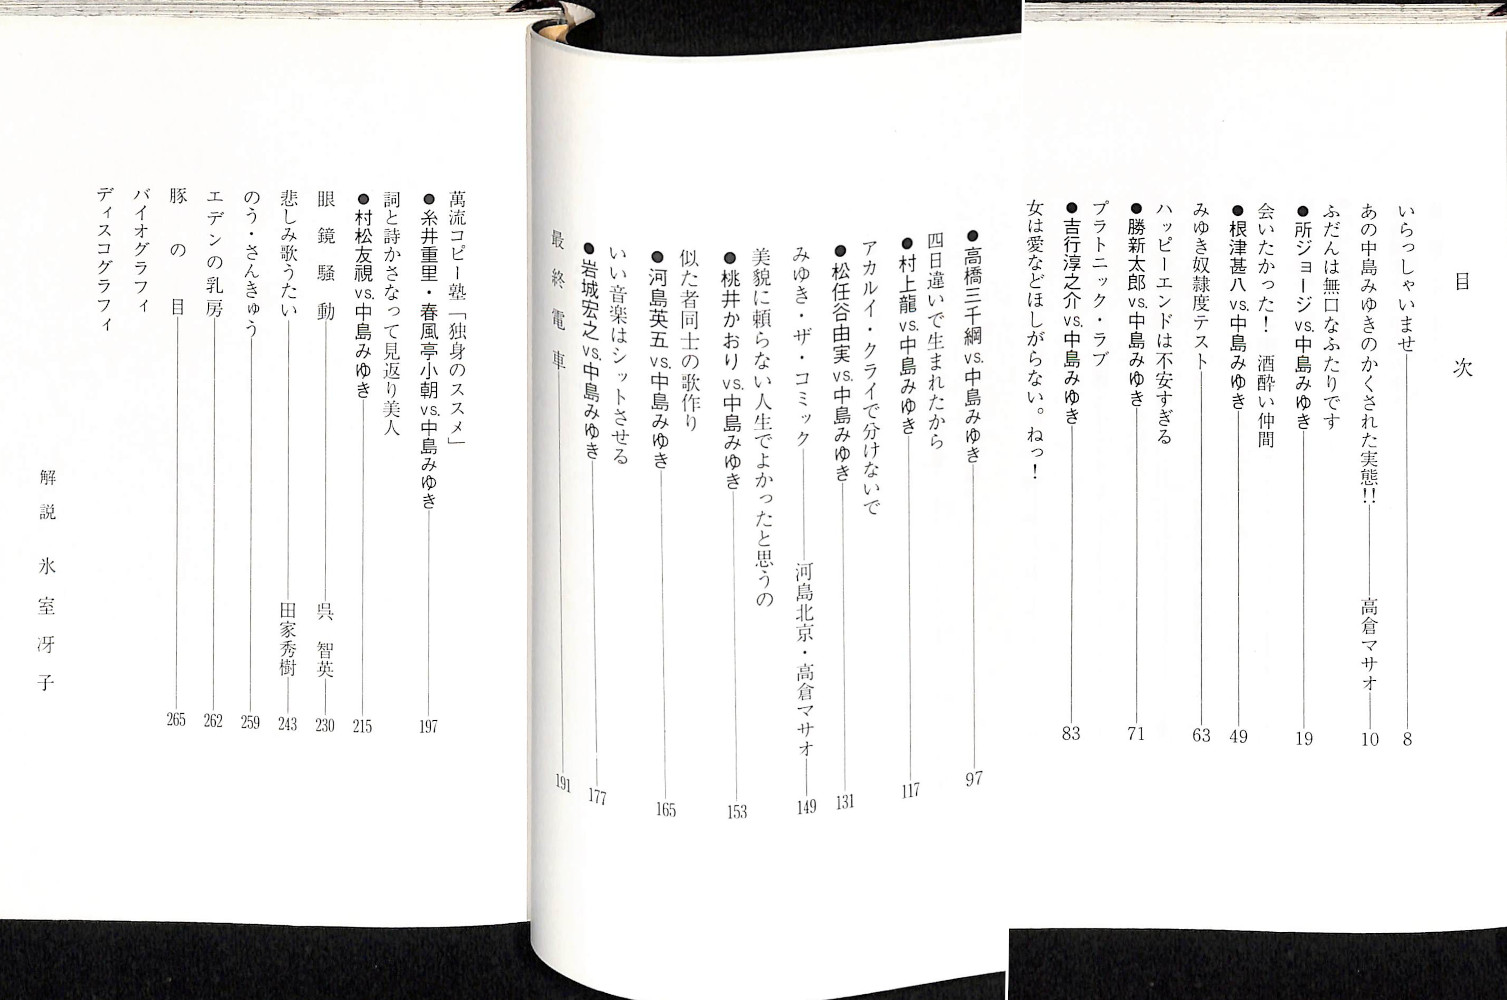 目次
いらっしゃいませ 8
あの中島みゆきのかくされた実態!! 高倉マサオ 10
ふだんは無口なふたりです
●所ジョージvs.中島みゆき 19
会いたかった! 酒酔い仲間
●根津甚八vs.中島みゆき 49
みゆき奴隷度テスト 63
ハッピーエンドは不安すぎる
●勝新太郎vs.中島みゆき 71
プラトニック・ラブ
●吉行淳之介vs.中島みゆき 83
女は愛などほしがらない。ねっ!
●高橋三千綱vs.中島みゆき 97
四日違いで生まれたから
●村上龍vs.中島みゆき 117
アカルイ・クライで分けないで
●松任谷由実vs.中島みゆき 131
みゆき・ザ・コミック 河島北京・高倉マサオ 149
美貌に頼らない人生でよかったと思うの
●桃井かおりvs.中島みゆき 153
似た者同士の歌作り
●河島英五vs.中島みゆき 165
いい音楽はシットさせる
●岩城宏之vs.中島みゆき 177
最終電車 191
萬流コピー塾「独身のススメ」
●糸井重里・春風亭小朝vs.中島みゆき 197
詞と詩かさなって見返り美人
●村松友視vs.中島みゆき 215
眼鏡騒動 呉智英 230
悲しみ歌うたい 田家秀樹 243
のう・さんきゅう 259
エデンの乳房 262
豚の目 265
バイオグラフィ
ディスコグラフィ
解説 氷室冴子